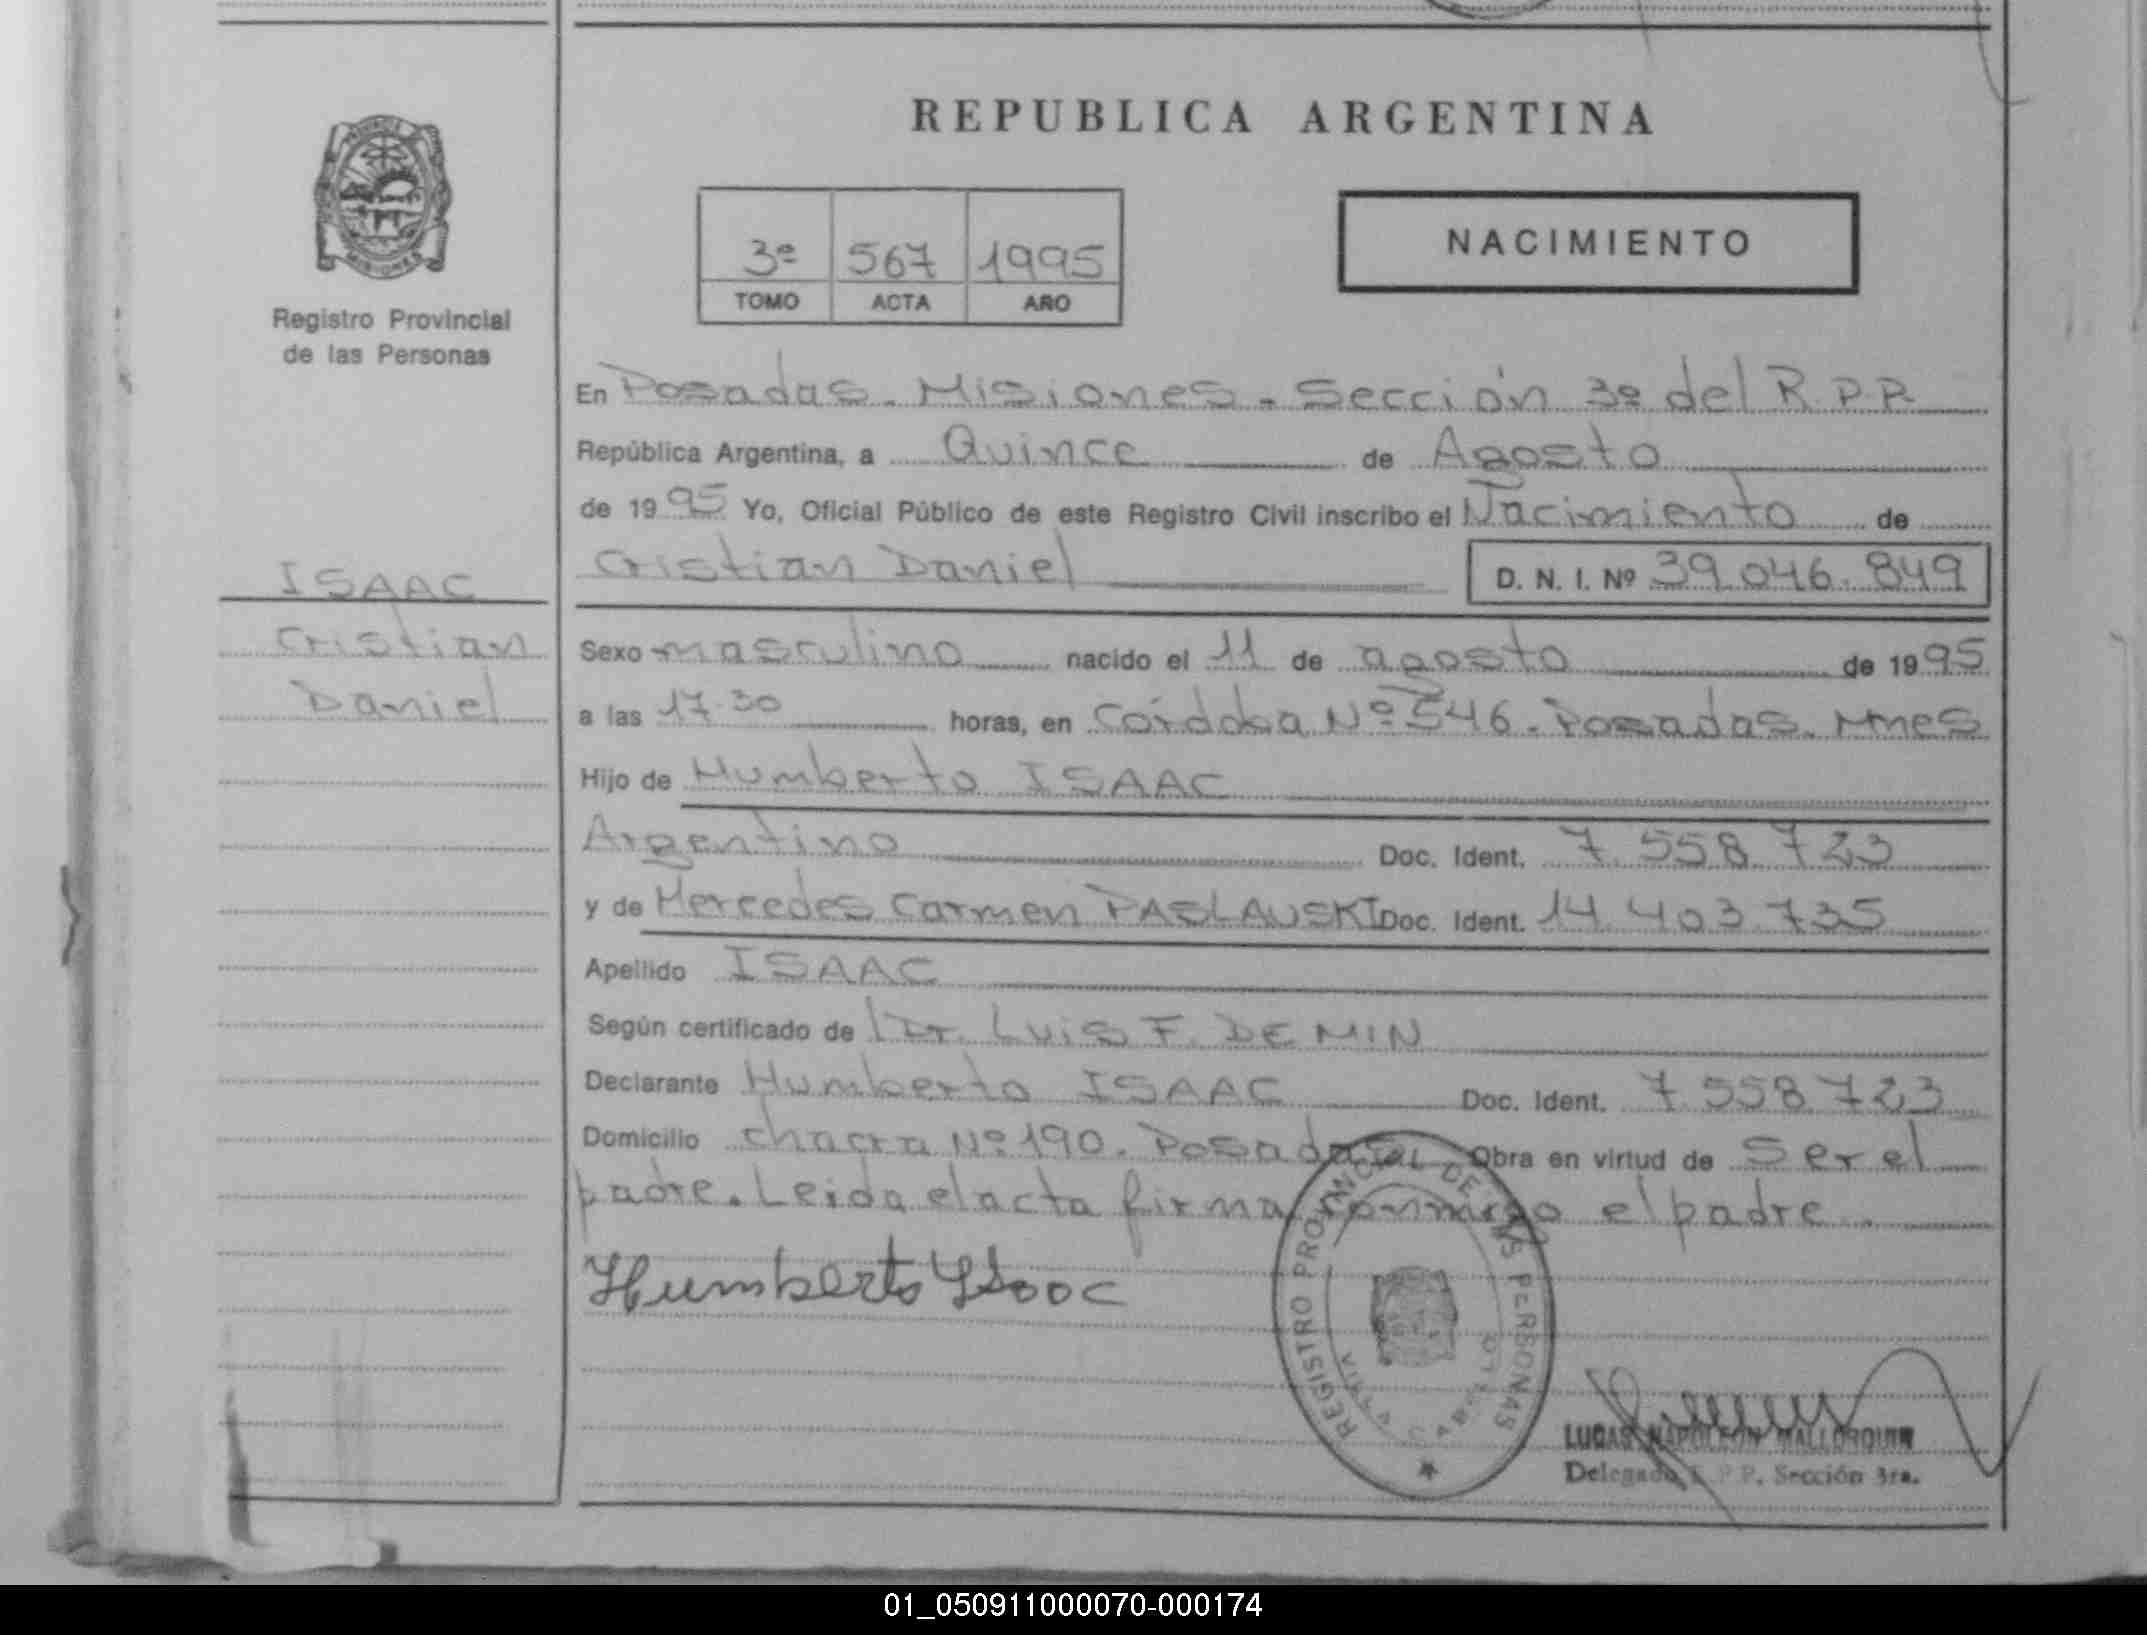 REPUBLICA ARGENTINA
MISIONES
Registro Provincial
de las Personas
3º 567 1995
TOMO ACTA AÑO
NACIMIENTO
En Posadas. Misiones. Sección 3º del R.P.P.
República Argentina, a Quince de Agosto
de 1995 Yo, Oficial Público de este Registro Civil inscribo el Nacimiento de
Cristian Daniel D. N. I. Nº 39.046.849
ISAAC
Cristian
Daniel
Sexo masculino nacido el 11 de agosto de 1995
a las 17.30 horas, en Córdoba Nº 546. Posadas. Mnes
Hijo de Humberto ISAAC
Argentino Doc. Ident. 7.558.723
y de Mercedes Carmen PASLAUSKI Doc. Ident. 14.403.735
Apellido ISAAC
Según certificado de Dr. Luis F. DEMIN
Declarante Humberto ISAAC Doc. Ident. 7.558.723
Domicilio chacra Nº 190. Posadas Obra en virtud de ser el
padre. Leida el acta firma conmigo el padre.
Humberto Isaac
REGISTRO PROVINCIAL DE LAS PERSONAS
LUCAS NAPOLEON MALLORQUIN
Delegado R.P.P. Sección 3ra.
01_050911000070-000174